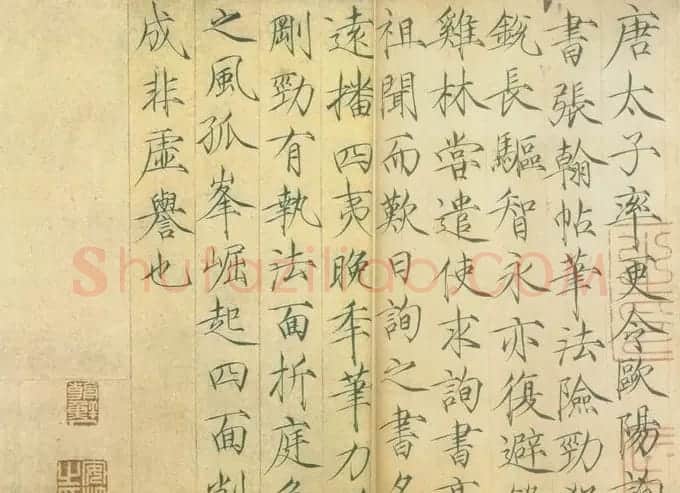 唐太子率更令歐陽詢
書張翰帖筆法險勁
銳長驅智永亦復避
雞林嘗遣使求詢書高
祖聞而歎曰詢之書名
遠播四夷晚年筆力
剛勁有執法面折庭
之風孤峯崛起四面削
成非虛譽也
Shufaziliao.COM